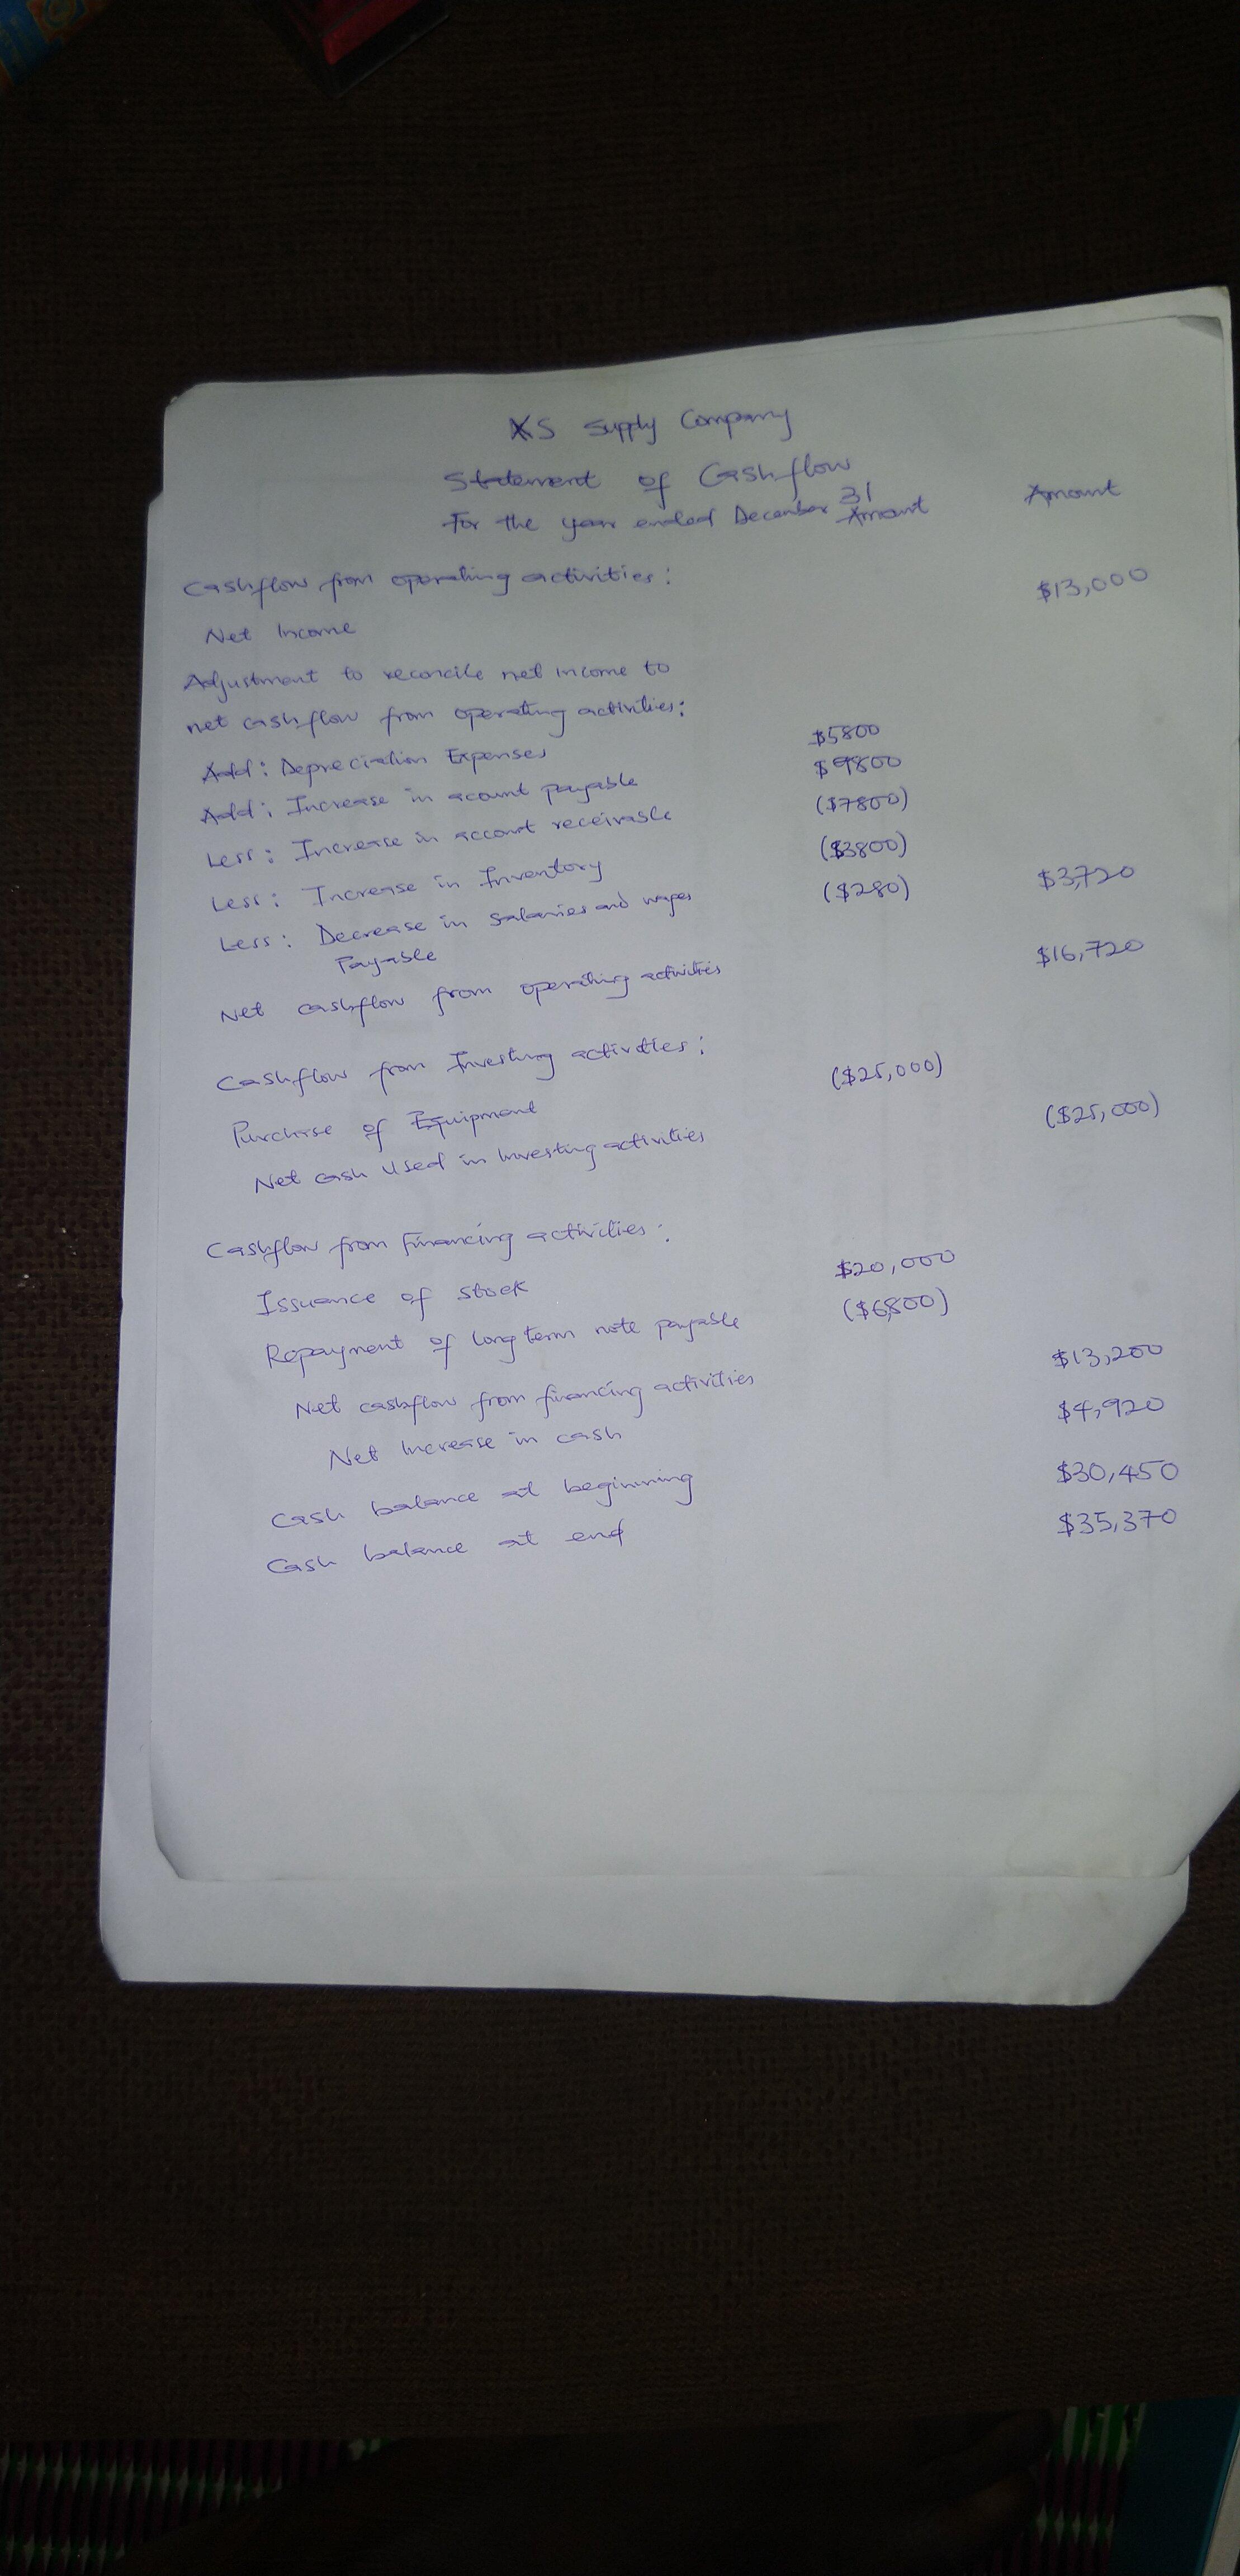 XS Supply Company
Statement of Cashflow
For the year ended December 31
Amount Amount
Cashflow from operating activities:
Net Income $13,000
Adjustment to reconcile net income to
net cashflow from operating activities:
Add: Depreciation Expenses $5800
Add: Increase in acount payable $9800
Less: Increase in account receivable ($7800)
Less: Increase in Inventory ($3800)
Less: Decrease in salaries and wages ($280) $3,720
Payable
Net cashflow from operating activities $16,720
Cashflow from Investing activities:
Purchase of Equipment ($25,000)
Net cash used in Investing activities ($25,000)
Cashflow from financing activities:
Issuance of stock $20,000
Repayment of long term note payable ($6,800)
Net cashflow from financing activities $13,200
Net Increase in cash $4,920
Cash balance at beginning $30,450
Cash balance at end $35,370